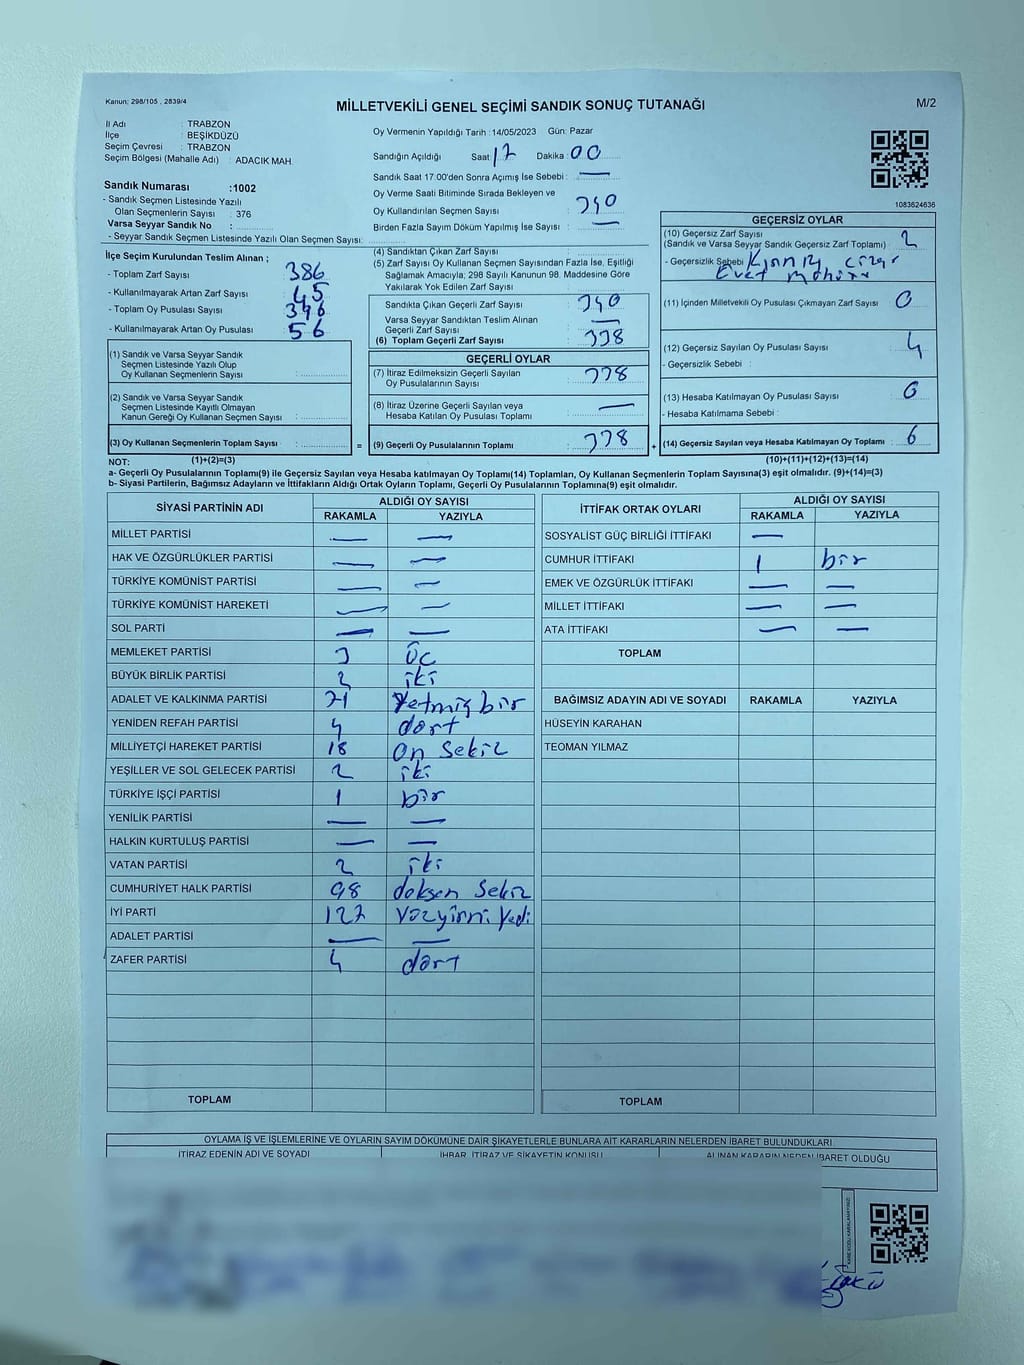 Kanun; 298/105 , 2839/4
MİLLETVEKİLİ GENEL SEÇİMİ SANDIK SONUÇ TUTANAĞI
M/2
İl Adı : TRABZON
İlçe : BEŞİKDÜZÜ
Seçim Çevresi : TRABZON
Seçim Bölgesi (Mahalle Adı) : ADACIK MAH.
Sandık Numarası :1002
- Sandık Seçmen Listesinde Yazılı
Olan Seçmenlerin Sayısı : 376
Varsa Seyyar Sandık No :
- Seyyar Sandık Seçmen Listesinde Yazılı Olan Seçmen Sayısı:
Oy Vermenin Yapıldığı Tarih :14/05/2023 Gün: Pazar
Sandığın Açıldığı Saat: 17 Dakika : 00
Sandık Saat 17.00'den Sonra Açımış İse Sebebi : —
Oy Verme Saati Bitiminde Sırada Bekleyen ve
Oy Kullandırılan Seçmen Sayısı : 340
Birden Fazla Sayım Döküm Yapılmış İse Sayısı : —
1083624636
İlçe Seçim Kurulundan Teslim Alınan ;
- Toplam Zarf Sayısı : 386
- Kullanılmayarak Artan Zarf Sayısı : 45
- Toplam Oy Pusulası Sayısı :
- Kullanılmayarak Artan Oy Pusulası : 56
(1) Sandık ve Varsa Seyyar Sandık
Seçmen Listesinde Yazılı Olup
Oy Kullanan Seçmenlerin Sayısı :
(2) Sandık ve Varsa Seyyar Sandık
Seçmen Listesinde Kayıtlı Olmayan
Kanun Gereği Oy Kullanan Seçmen Sayısı :
(3) Oy Kullanan Seçmenlerin Toplam Sayısı :
(1)+(2)=(3)
(4) Sandıktan Çıkan Zarf Sayısı :
(5) Zarf Sayısı Oy Kullanan Seçmen Sayısından Fazla İse, Eşitliği
Sağlamak Amacıyla; 298 Sayılı Kanunun 98. Maddesine Göre
Yakılarak Yok Edilen Zarf Sayısı :
Sandıkta Çıkan Geçerli Zarf Sayısı : 340
Varsa Seyyar Sandıktan Teslim Alınan
Geçerli Zarf Sayısı : —
(6) Toplam Geçerli Zarf Sayısı : 338
GEÇERLİ OYLAR
(7) İtiraz Edilmeksizin Geçerli Sayılan
Oy Pusulalarının Sayısı : 338
(8) İtiraz Üzerine Geçerli Sayılan veya
Hesaba Katılan Oy Pusulası Toplamı : —
= (9) Geçerli Oy Pusulalarının Toplamı : 338
GEÇERSİZ OYLAR
(10) Geçersiz Zarf Sayısı : 2
(Sandık ve Varsa Seyyar Sandık Geçersiz Zarf Toplamı)
- Geçersizlik Sebebi :
Evet
(11) İçinden Milletvekili Oy Pusulası Çıkmayan Zarf Sayısı : 0
(12) Geçersiz Sayılan Oy Pusulası Sayısı : 4
- Geçersizlik Sebebi :
(13) Hesaba Katılmayan Oy Pusulası Sayısı : 0
- Hesaba Katılmama Sebebi :
+ (14) Geçersiz Sayılan veya Hesaba Katılmayan Oy Toplamı : 6
(10)+(11)+(12)+(13)=(14)
NOT:
a- Geçerli Oy Pusulalarının Toplamı(9) ile Geçersiz Sayılan veya Hesaba katılmayan Oy Toplamı(14) Toplamları, Oy Kullanan Seçmenlerin Toplam Sayısına(3) eşit olmalıdır. (9)+(14)=(3)
b- Siyasi Partilerin, Bağımsız Adayların ve İttifakların Aldığı Ortak Oyların Toplamı, Geçerli Oy Pusulalarının Toplamına(9) eşit olmalıdır.
SİYASİ PARTİNİN ADI ALDIĞI OY SAYISI
RAKAMLA YAZIYLA
MİLLET PARTİSİ — —
HAK VE ÖZGÜRLÜKLER PARTİSİ — —
TÜRKİYE KOMÜNİST PARTİSİ — —
TÜRKİYE KOMÜNİST HAREKETİ — —
SOL PARTİ — —
MEMLEKET PARTİSİ 3 üç
BÜYÜK BİRLİK PARTİSİ 2 iki
ADALET VE KALKINMA PARTİSİ 71 Yetmiş bir
YENİDEN REFAH PARTİSİ 4 dört
MİLLİYETÇİ HAREKET PARTİSİ 18 On Sekiz
YEŞİLLER VE SOL GELECEK PARTİSİ 2 iki
TÜRKİYE İŞÇİ PARTİSİ 1 bir
YENİLİK PARTİSİ — —
HALKIN KURTULUŞ PARTİSİ — —
VATAN PARTİSİ 2 iki
CUMHURİYET HALK PARTİSİ 98 doksen Sekiz
İYİ PARTİ 127 Yüzyirmi Yedi
ADALET PARTİSİ — —
ZAFER PARTİSİ 4 dört
TOPLAM
İTTİFAK ORTAK OYLARI ALDIĞI OY SAYISI
RAKAMLA YAZIYLA
SOSYALİST GÜÇ BİRLİĞİ İTTİFAKI —
CUMHUR İTTİFAKI 1 bir
EMEK VE ÖZGÜRLÜK İTTİFAKI — —
MİLLET İTTİFAKI — —
ATA İTTİFAKI — —
TOPLAM
BAĞIMSIZ ADAYIN ADI VE SOYADI RAKAMLA YAZIYLA
HÜSEYİN KARAHAN
TEOMAN YILMAZ
TOPLAM
OYLAMA İŞ VE İŞLEMLERİNE VE OYLARIN SAYIM DÖKÜMÜNE DAİR ŞİKAYETLERLE BUNLARA AİT KARARLARIN NELERDEN İBARET BULUNDUKLARI
İTİRAZ EDENİN ADI VE SOYADI İHBAR, İTİRAZ VE ŞİKAYETİN KONUSU ALINAN KARARIN NEDEN İBARET OLDUĞU